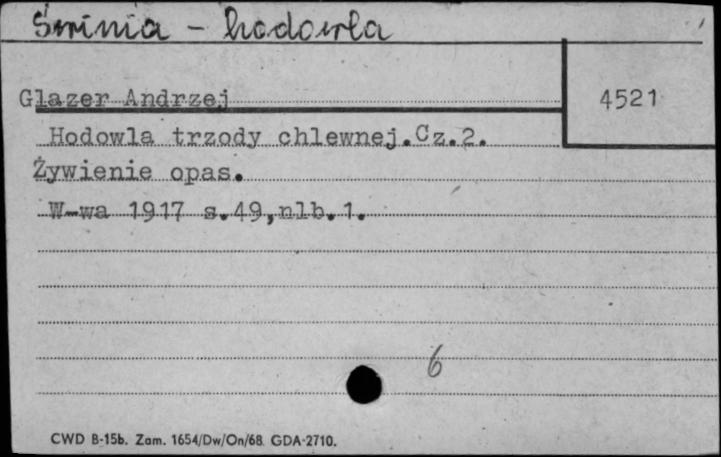 Świnia - hodowla
Glazer Andrzej
4521
Hodowla trzody chlewnej.Cz.2.
Żywienie opas.
W-wa 1917 s.49,nlb.1.
6
CWD B-15b. Zam. 1654/Dw/On/68. GDA-2710.